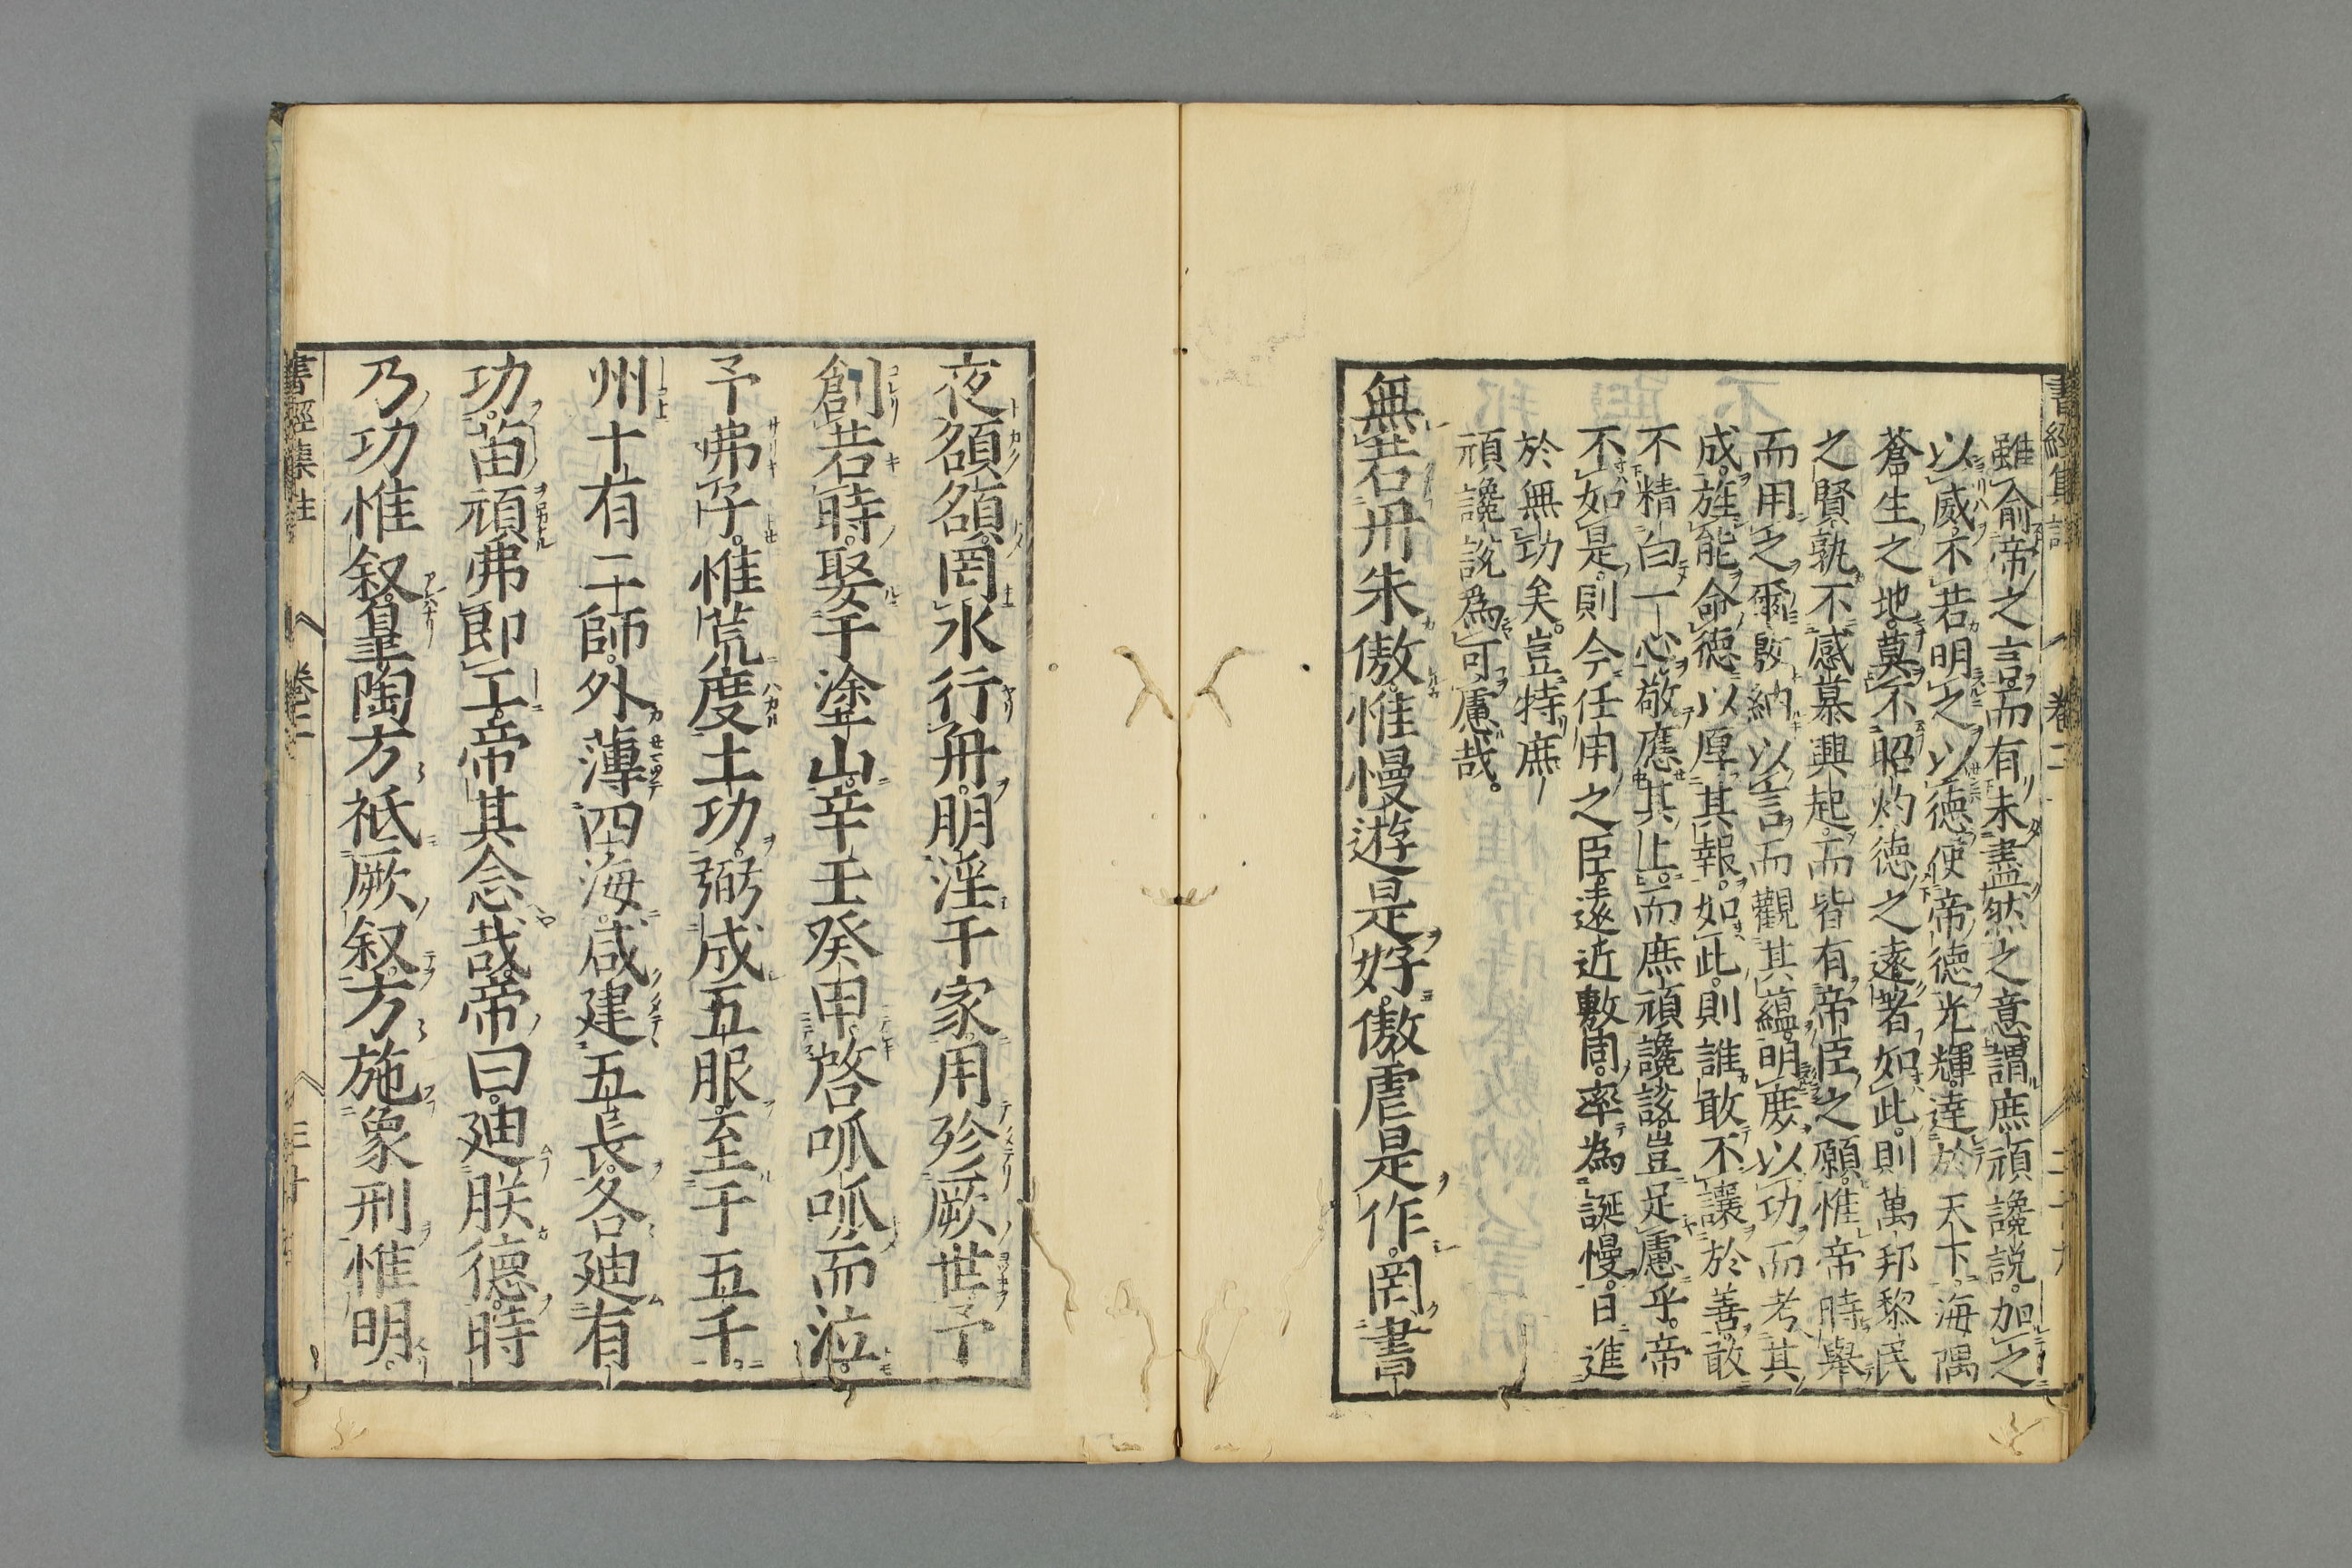 書經集註 卷二
雖俞帝之言。而有未盡然之意。謂庶頑讒説。加之
以威。不若明之以德。使帝德光輝。達於天下。海隅
蒼生之地。莫不昭灼。德之遠著如此。則萬邦黎民
之賢。孰不感慕興起。而皆有帝臣之願。惟帝時舉
而用之爾。敷納以言。而觀其蘊。明庶以功。而考其
成。旌能命德。以厚其報。如此。則誰敢不讓於善。敢
不精白一心。敬應其上。而庶頑讒説。豈足慮乎。帝
不如是。則今任用之臣。遠近敷同。率為誕慢。日進
於無功矣。豈特庶
頑讒説爲可慮哉。
無若丹朱傲。惟慢遊是好。傲虐是作。罔書
夜頟頟。罔水行舟。朋淫于家。用殄厥世。予
創若時。娶于塗山。辛壬癸甲。啓呱呱而泣。
予弗子。惟荒度土功。弼成五服。至于五千。
州十有二師。外薄四海。咸建五長。各廸有
功。苗頑弗即工。帝其念哉。帝曰。廸朕德。時
乃功惟叙。皐陶方祗厥叙。方施象刑惟明。
書經集註 卷二 三十